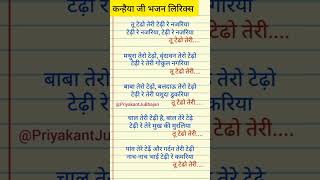 कन्हैया जी भजन लिरिक्स
तू टेढो तेरी टेढ़ी रे नजरिया
टेढ़ी रे नजरिया, टेढ़ी रे नजरिया
तू टेढो तेरी....
मथुरा तेरो टेढ़ो, वृंदावन तेरो टेढ़ो
टेढ़ी रे तेरी गोकुल नगरिया
तू टेढो तेरी....
बाबा तेरो टेढ़ो, बलदाऊ तेरो टेढ़ो
टेढ़ी रे तेरी यशुदा डुकरिया
@PriyakantJuBhajan तू टेढो तेरी....
चाल तेरी टेढ़ी है, बाल तेरे टेढ़े
टेढ़ी रे तेरे मुख की मुरलिया
तू टेढो तेरी....
पांव तेरे टेढ़े और गर्दन तेरी टेढ़ी
नाच नाच भाई टेढ़ी रे कमरिया
तू टेढो तेरी....